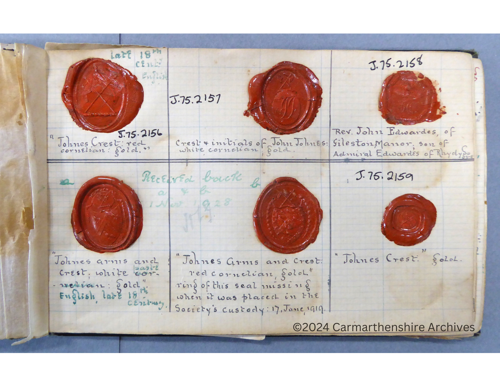 late 18th
cent.
English
J.75.2156
"Johnes Crest, red
cornelian, gold."
J.75.2157
Crest & initials of John Johnes:
white cornelian gold
J.75.2158
Rev. John Edwardes, of
Gileston Manor, son of
Admiral Edwardes of
a
Received back
a & b
1928
b
"Johnes arms and
crest, white cor-
nelian: gold"
English, late 18th
century.
"Johnes Arms and Crest
red cornelian, gold"
ring of this seal missing
when it was placed in the
Society's custody: 17, June, 1919.
J.75.2159
"Johnes Crest" gold.
©2024 Carmarthenshire Archives